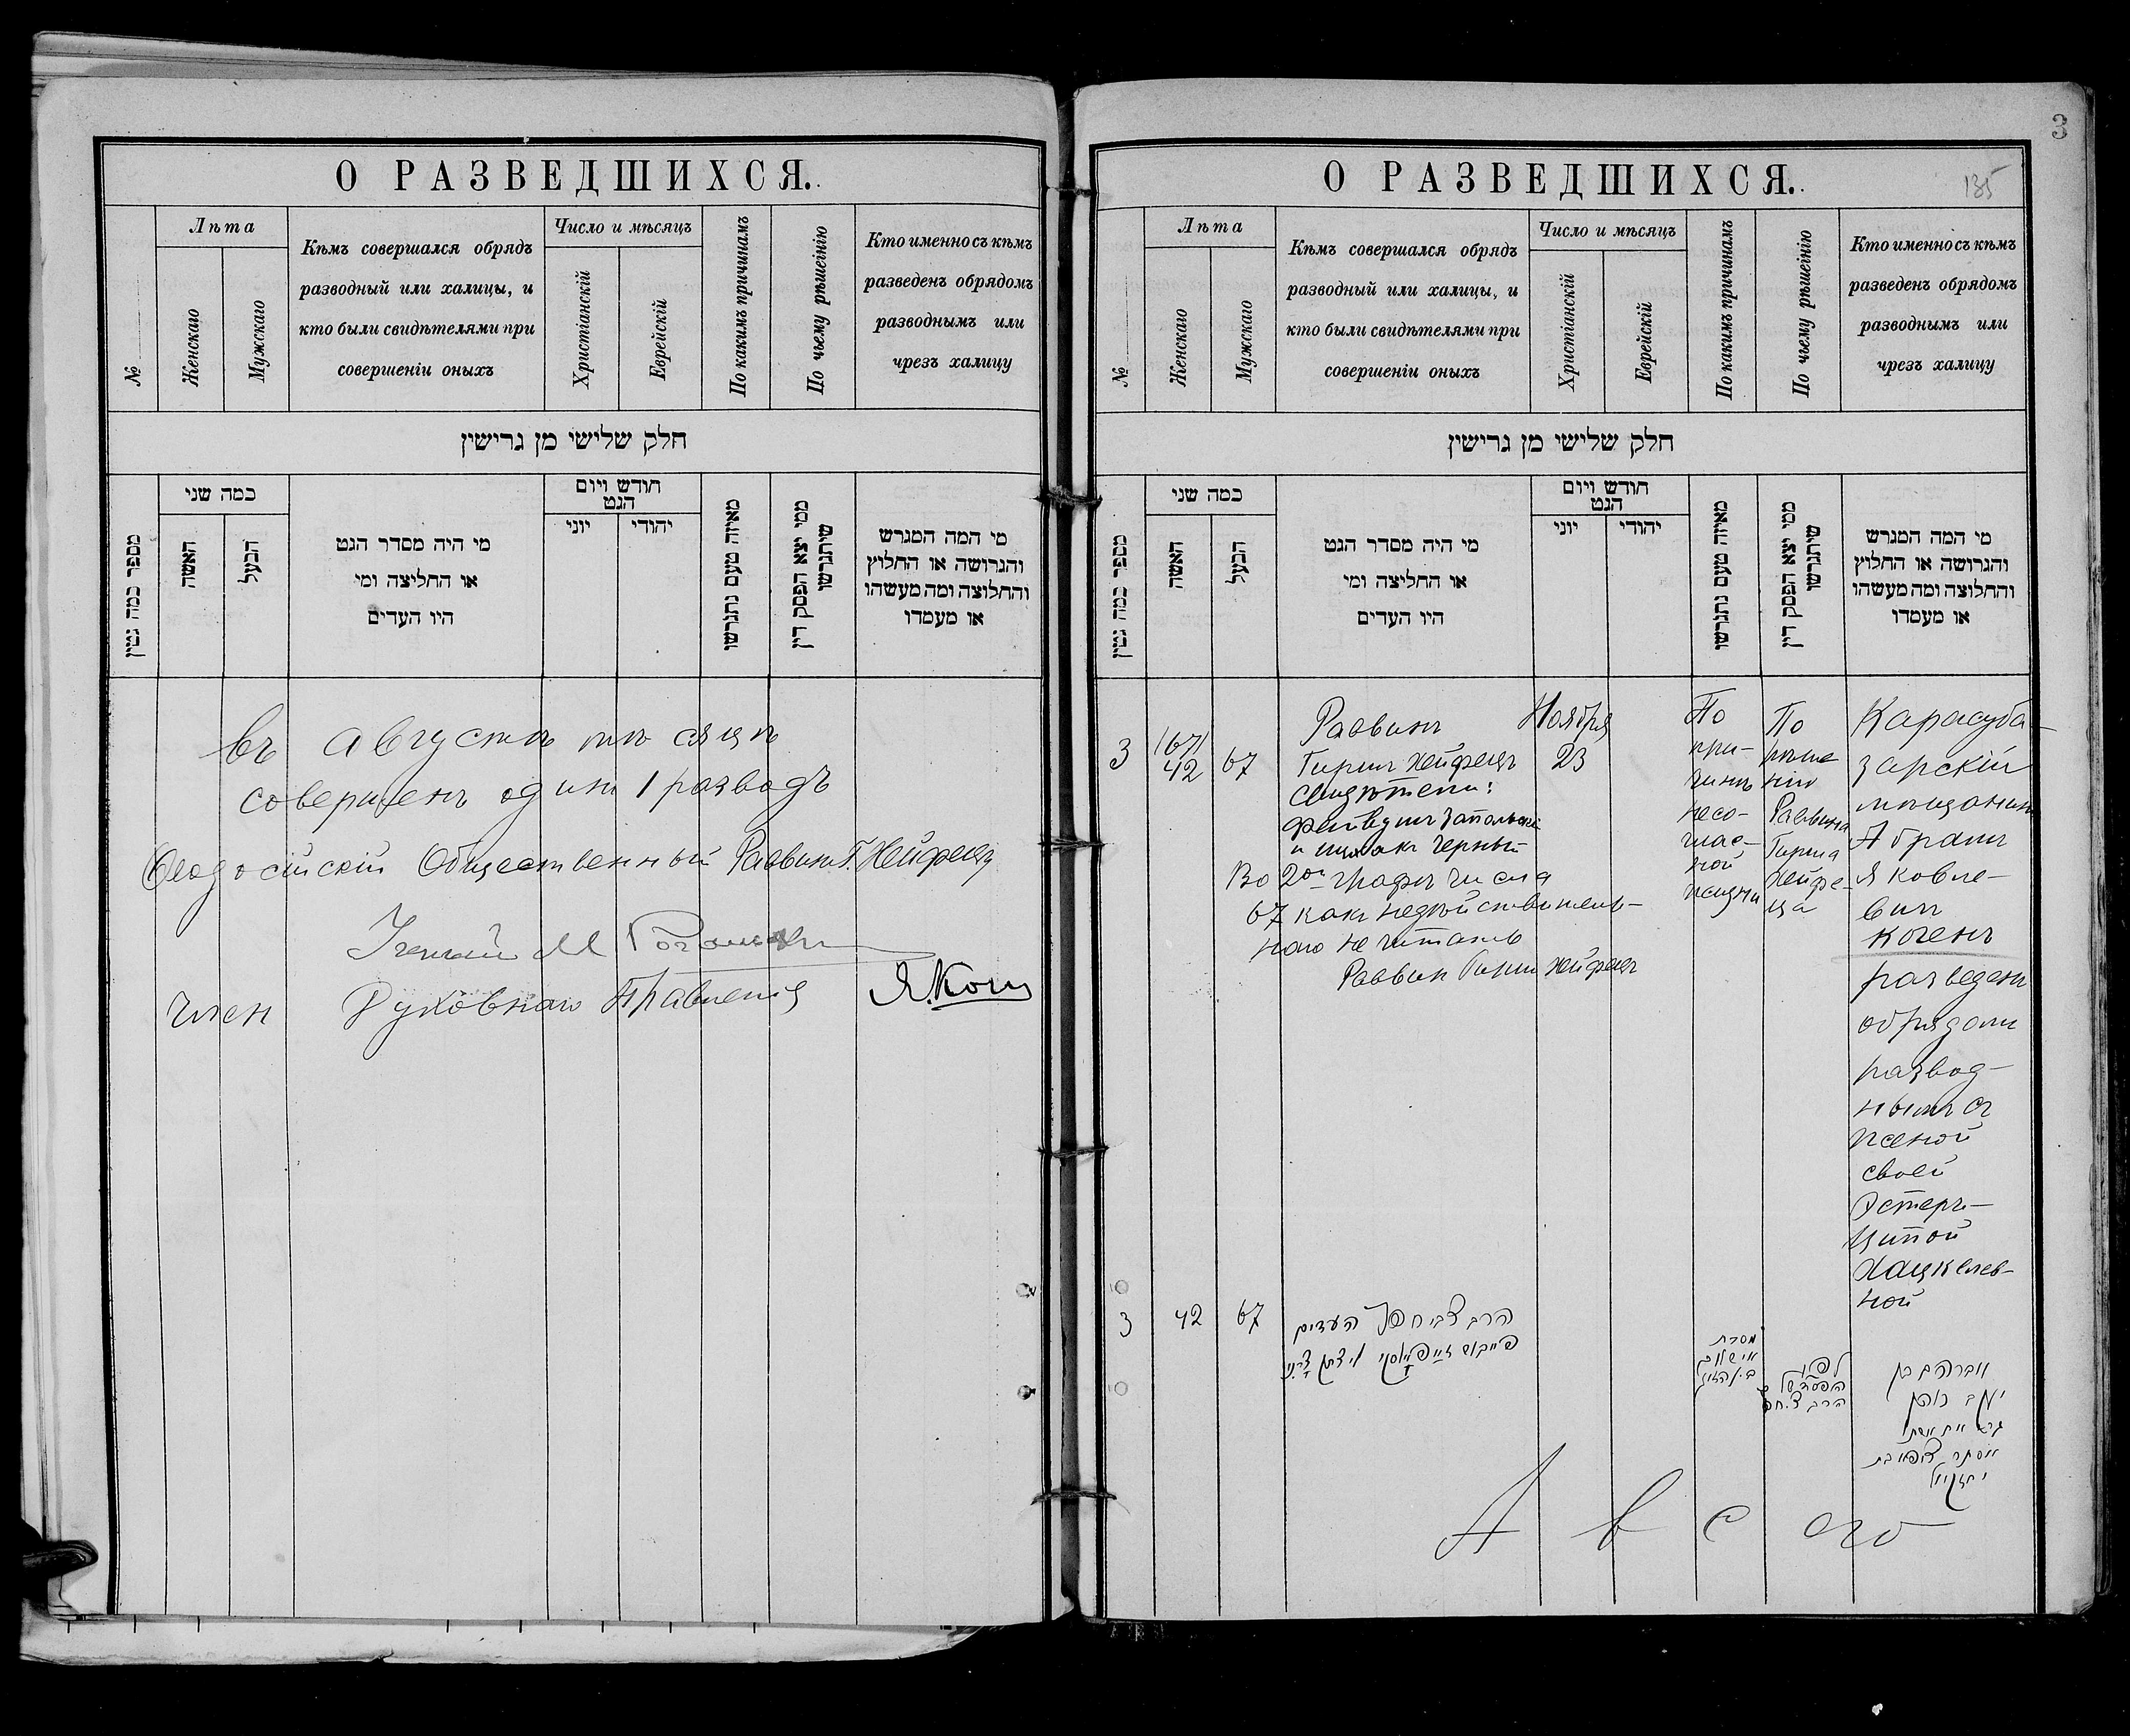 О РАЗВЕДШИХСЯ.
№
Лѣта
Женскаго
Мужскаго
Кѣмъ совершался обрядъ
разводный или халицы, и
кто были свидѣтелями при
совершеніи оныхъ
Число и мѣсяцъ
Христіанскій
Еврейскій
По какимъ причинамъ
По чьему рѣшенію
Кто именно съ кѣмъ
разведенъ обрядомъ
разводнымъ или
чрезъ халицу
חלק שלישי מן גרישין
מספר כמה גטין
כמה שני
האשה
הבעל
מי היה מסדר הגט
או החליצה ומי
היו העדים
חודש ויום
הגט
יוני
יהודי
מאיזה טעם נתגרשו
ממי יצא הפסק דין
שיתגרשו
מי המה המגרש
והגרושה או החלוץ
והחלוצה ומה מעשהו
או מעמדו
въ Августѣ мѣсяцѣ
совершенъ одинъ 1 разводъ
Ѳеодосійскій Общественный Раввинъ Г. Хейфецъ
Ученый М
Член Духовнаго Правленія Я. Коген
3
О РАЗВЕДШИХСЯ.
135
№
Лѣта
Женскаго
Мужскаго
Кѣмъ совершался обрядъ
разводный или халицы, и
кто были свидѣтелями при
совершеніи оныхъ
Число и мѣсяцъ
Христіанскій
Еврейскій
По какимъ причинамъ
По чьему рѣшенію
Кто именно съ кѣмъ
разведенъ обрядомъ
разводнымъ или
чрезъ халицу
חלק שלישי מן גרישין
מספר כמה גטין
כמה שני
האשה
הבעל
מי היה מסדר הגט
או החליצה ומי
היו העדים
חודש ויום
הגט
יוני
יהודי
מאיזה טעם נתגרשו
ממי יצא הפסק דין
שיתגרשו
מי המה המגרש
והגרושה או החלוץ
והחלוצה ומה מעשהו
או מעמדו
3
(67)
42
67
Раввинъ
Гиршъ Хейфецъ
свидѣтели:
и Ицхокъ Черный
Во 2ой графѣ числа
67 какъ недѣйствитель-
наго не читать
Раввин Гиршъ Хейфецъ
Ноября
23
По
при-
чинѣ
несо-
глас-
ной
жизни
По
рѣше
нію
Раввина
Гирша
Хейфе-
ца
Карасуба-
зарскій
мѣщанинъ
Абрамъ
Яковле-
вичъ
Когенъ
разведенъ
обрядомъ
развод-
нымъ съ
женой
своей
Эстеръ-
Ципой
Хацкелев-
ной
3
42
67
הרב צבי חפץ העדים
אברהם בן
יעקב כהן
גרש את אשתו
אסתר ציפא בת
יחזקאל